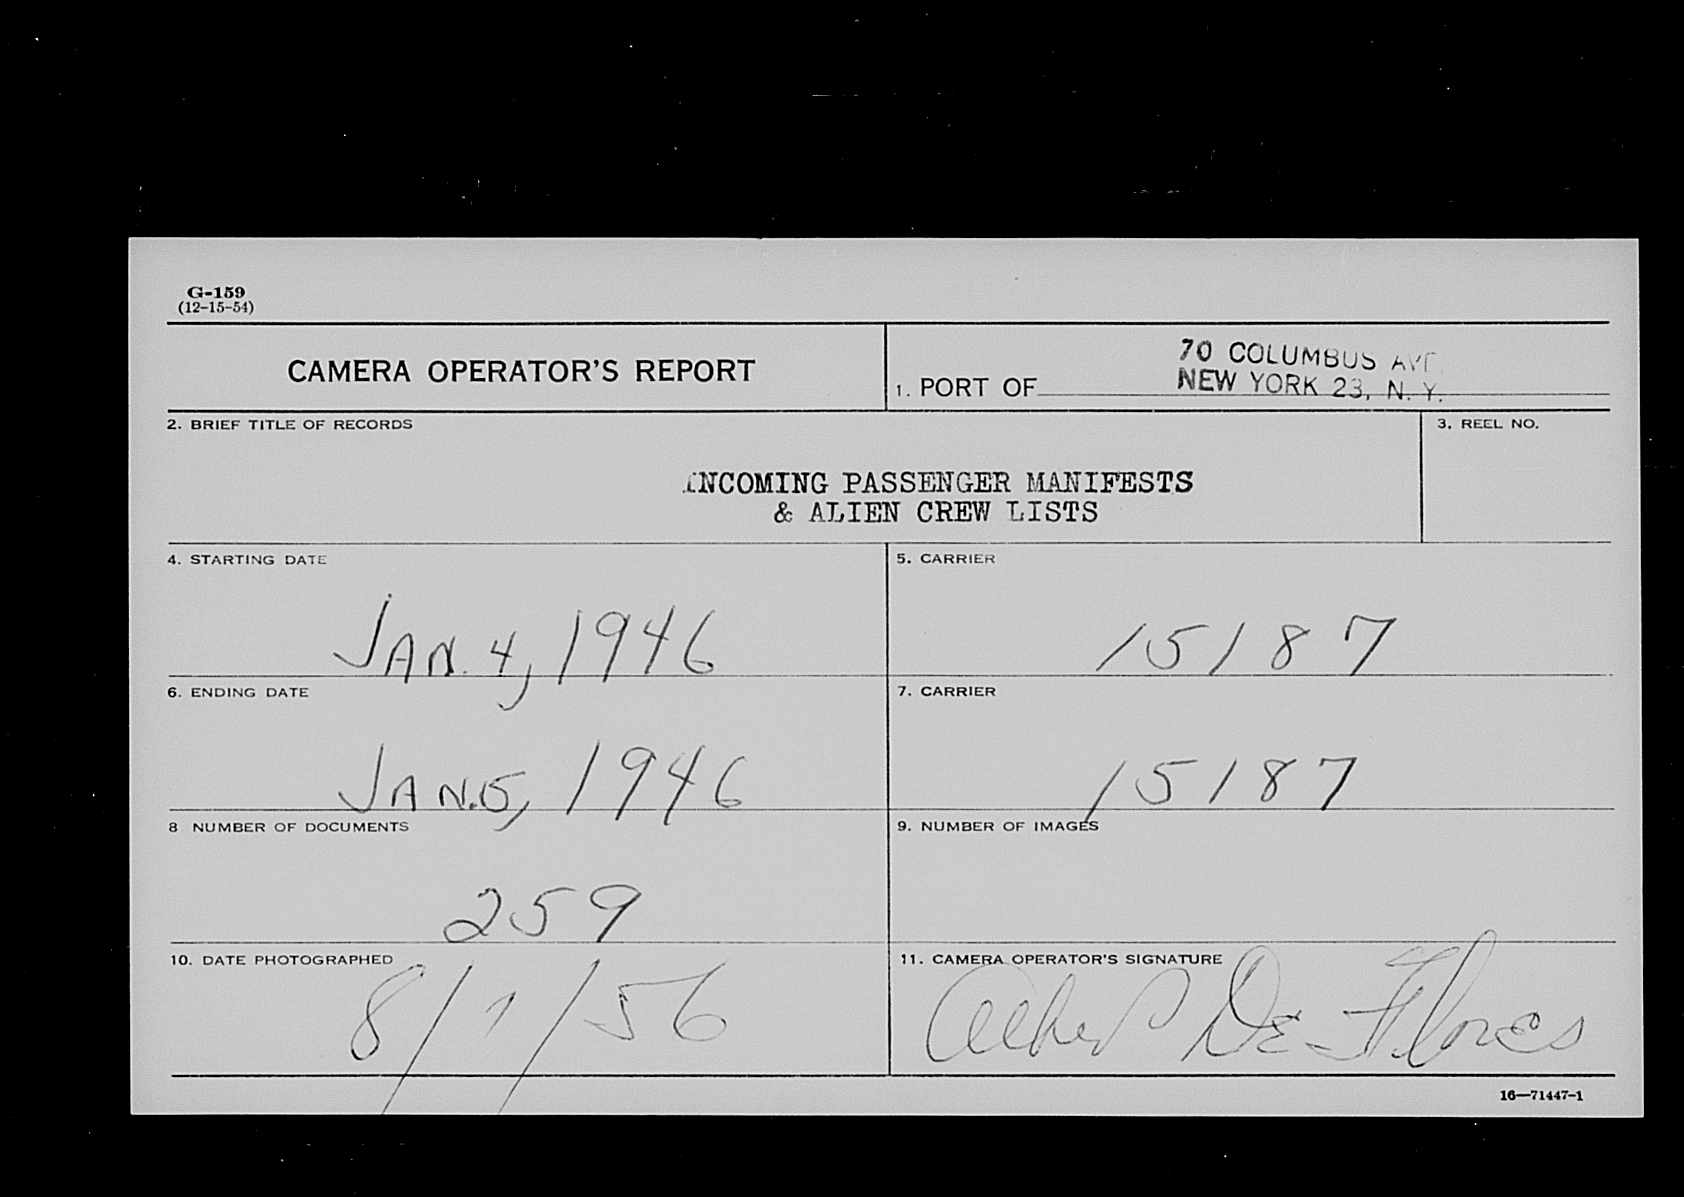 G-159
(12-15-54)
CAMERA OPERATOR'S REPORT
70 COLUMBUS AVE
1. PORT OF NEW YORK 23, N. Y.
2. BRIEF TITLE OF RECORDS
3. REEL NO.
INCOMING PASSENGER MANIFESTS
& ALIEN CREW LISTS
4. STARTING DATE
5. CARRIER
JAN. 4, 1946
15187
6. ENDING DATE
7. CARRIER
JAN. 5, 1946
15187
8 NUMBER OF DOCUMENTS
9. NUMBER OF IMAGES
259
10. DATE PHOTOGRAPHED
11. CAMERA OPERATOR'S SIGNATURE
8/1/56
De Flores
16—71447-1